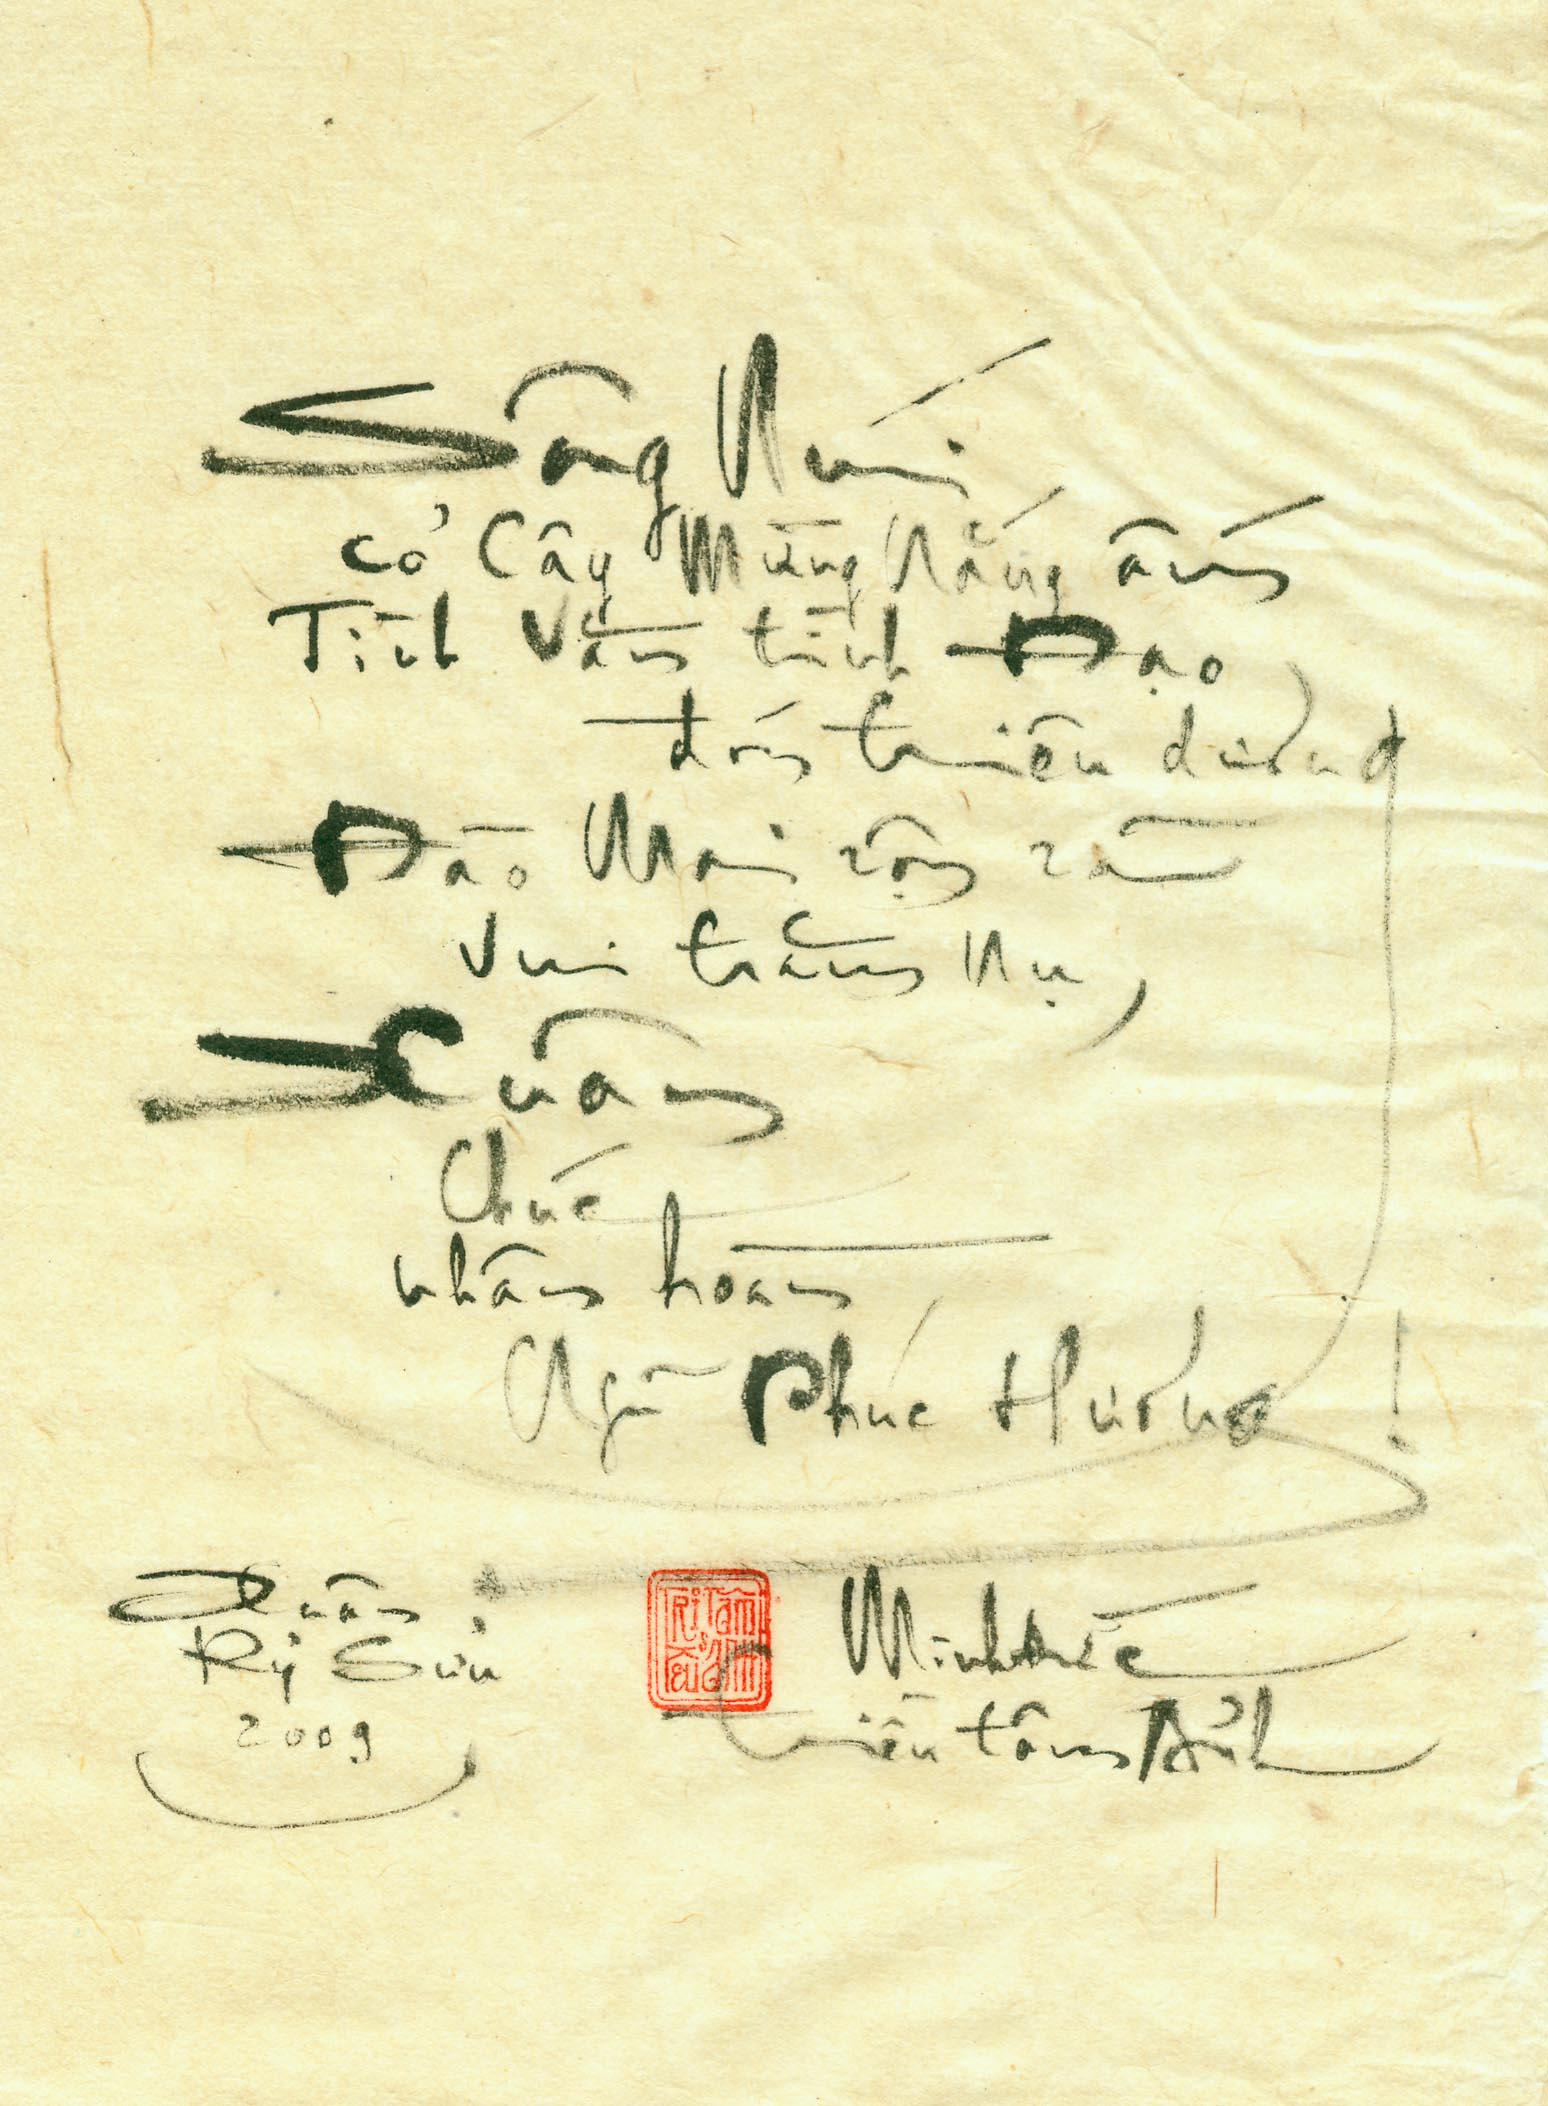 Sông Núi
cỏ Cây Mừng Nắng ấm,
Tình Văn tình Đạo
đón thiều dương
Đào Mai rộn ràn
vui trăm Nụ,
Xuân
Chúc
nhân hoàn
Ngũ Phúc Hường!
Xuân:
Kỷ Sửu
2009
Minh Đức
Triều Tâm Ảnh